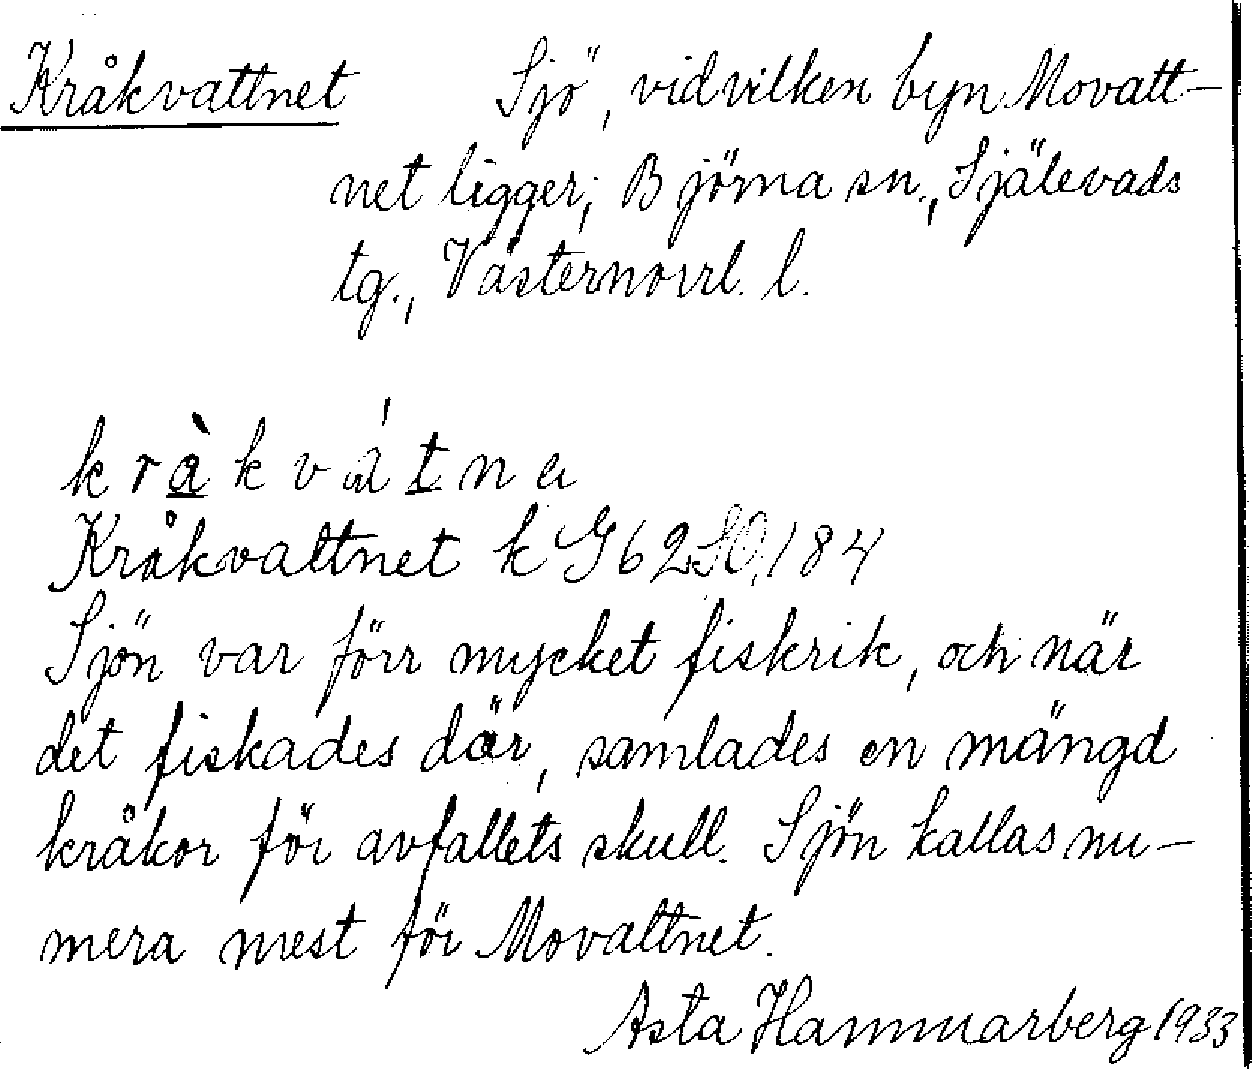 Kråkvattnet Sjö, vid vilken byn Movatt-
net ligger; Björna sn., Själevads
tg., Västernorrl. l.
kràkvátna
Kråkvattnet k G 62 SO, 184
Sjön var förr mycket fiskrik, och när
det fiskades där, samlades en mängd
kråkor för avfallets skull. Sjön kallas nu-
mera mest för Movattnet.
Asta Hammarberg 1933